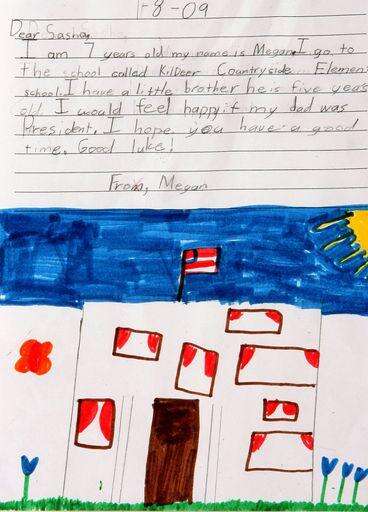 1-8-09
Dear Sasha,
I am 7 years old my name is Megan. I go to
the school called KilDeer Countryside Elemen
school. I have a little brother he is five yeas
old. I would feel happy if my dad was
President. I hope you have a good
time. Good luke!
From, Megan